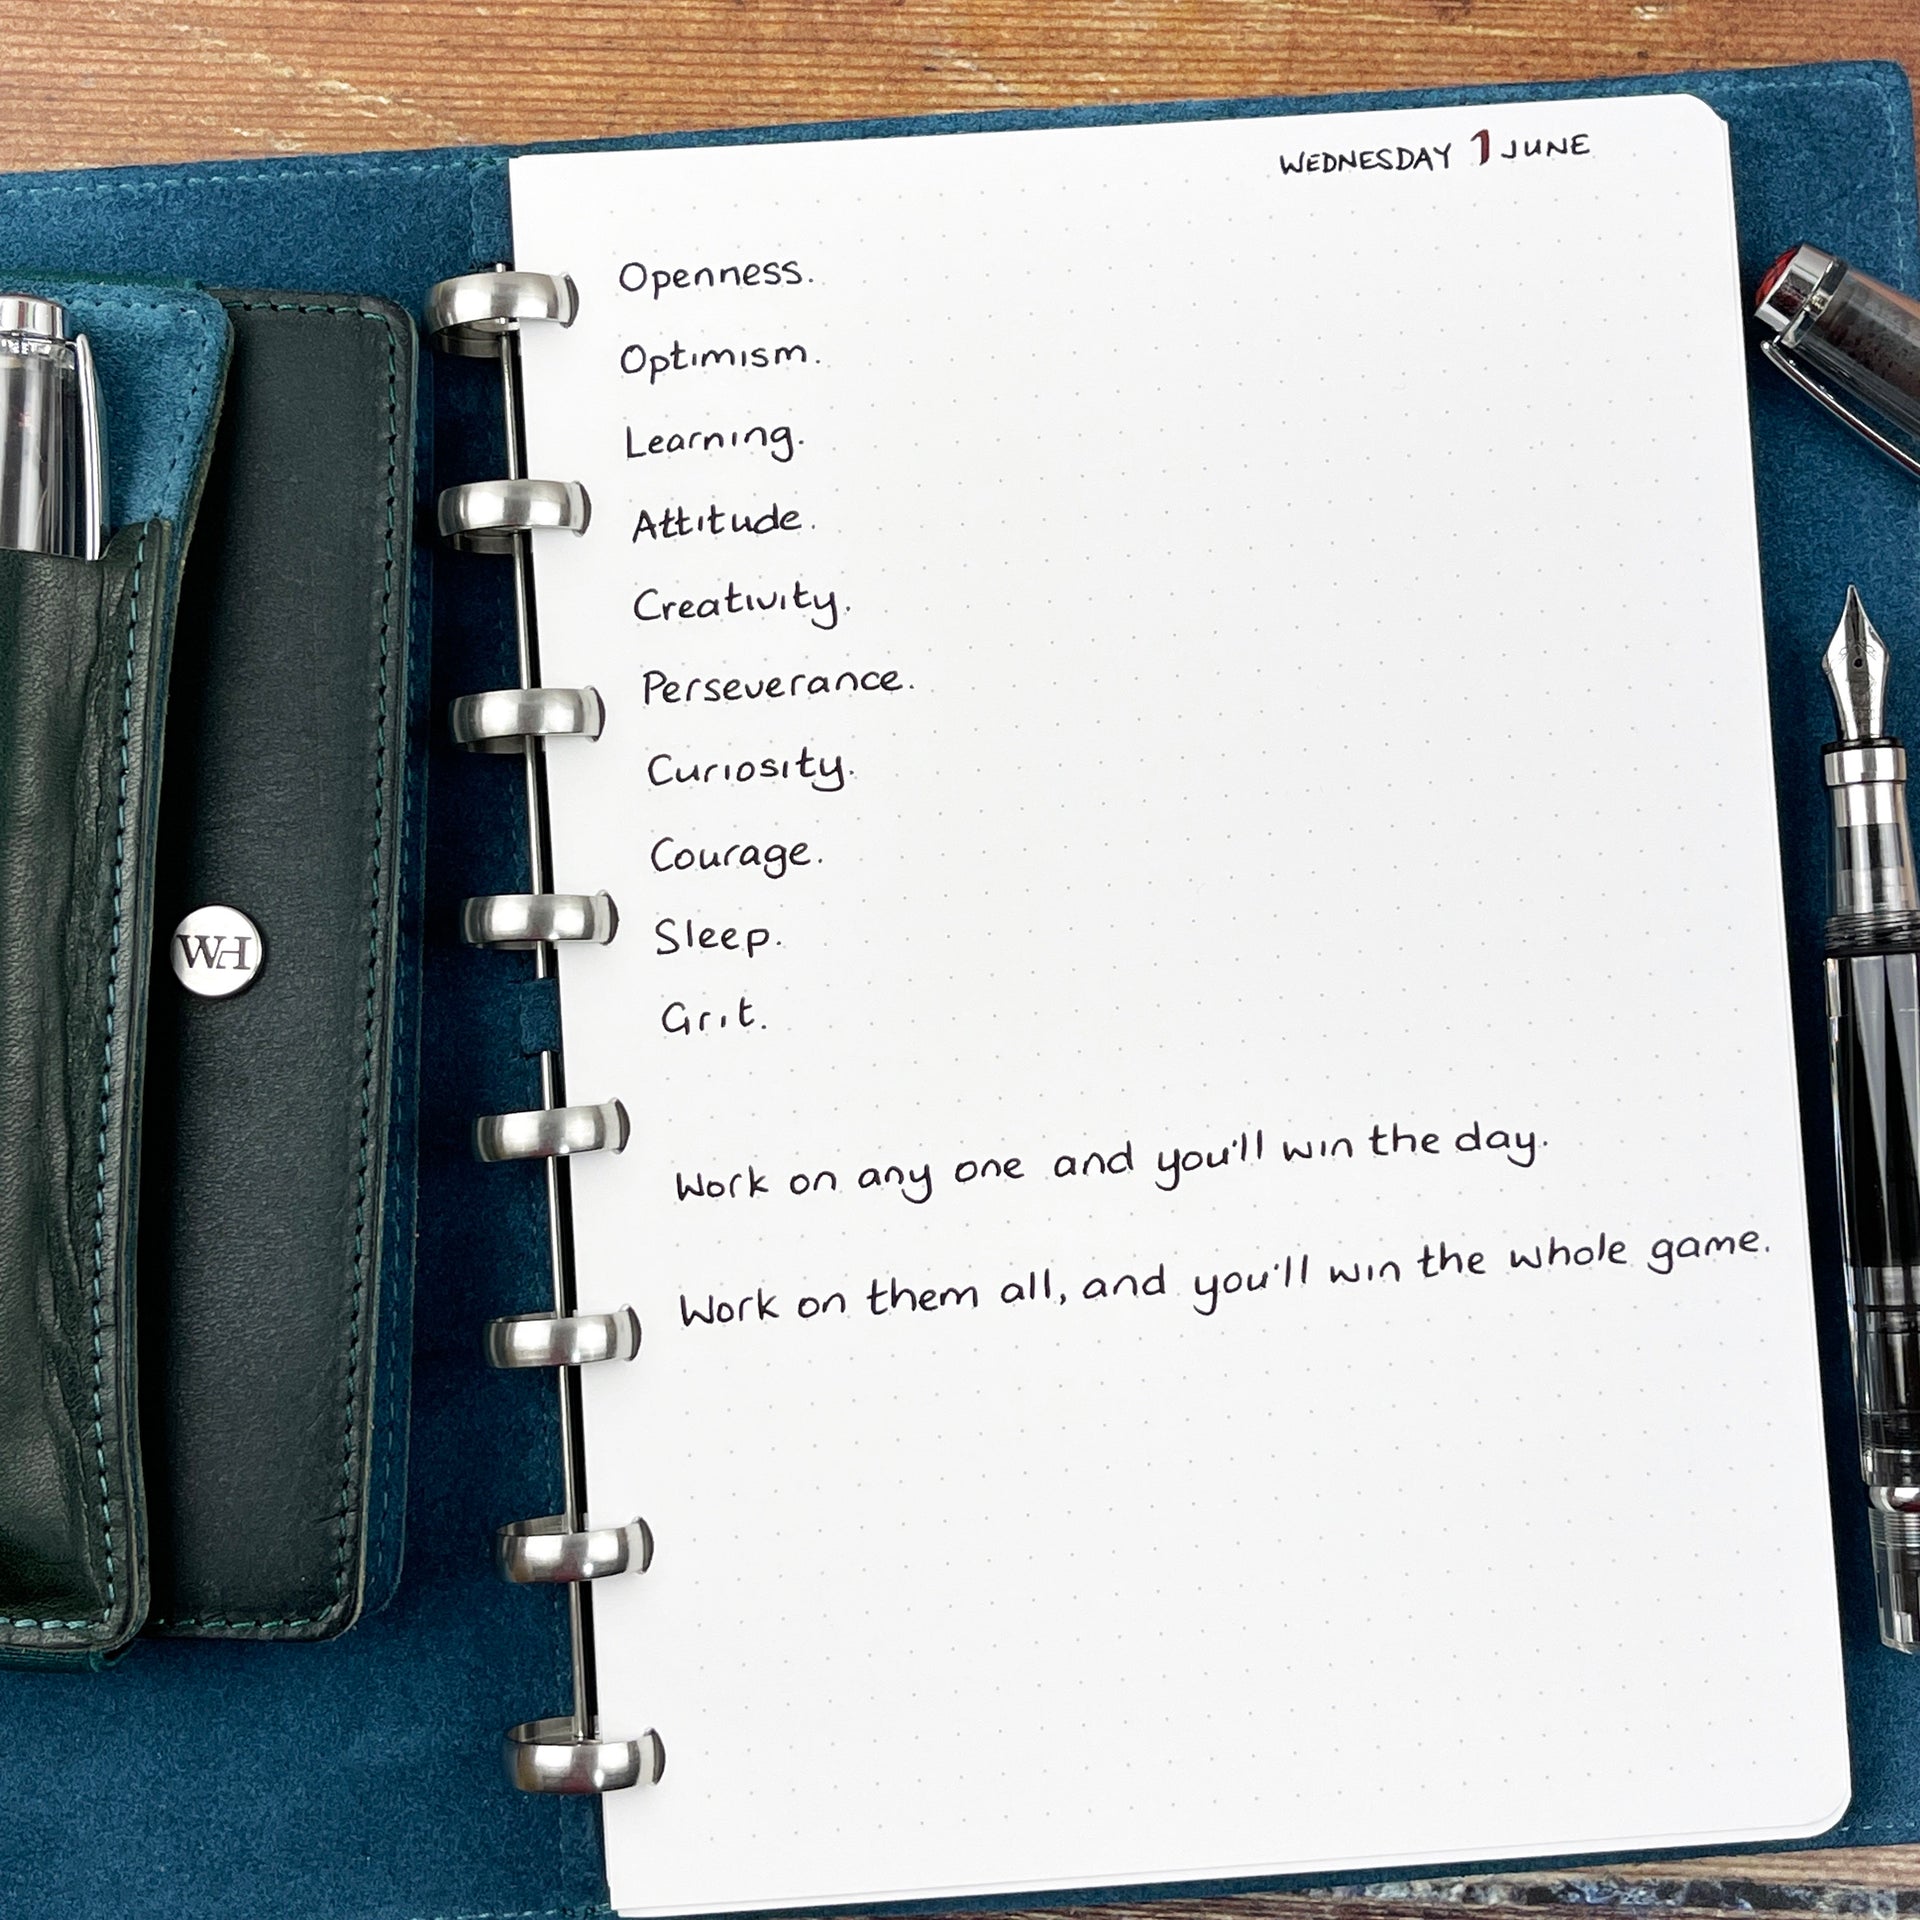 WEDNESDAY 1 JUNE
Openness.
Optimism.
Learning.
Attitude.
Creativity.
Perseverance.
Curiosity.
Courage.
Sleep.
Grit.
Work on any one and you'll win the day.
Work on them all, and you'll win the whole game.
WH